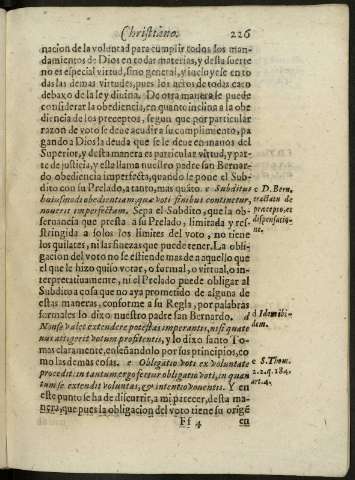 Christiano. 226
nacion de la voluntad para cumplir todos los man-
damientos de Dios en todas materias, y desta suerte
no es especial virtud, sino general, y incluyese en to
das las demas virtudes, pues los actos de todas caen
debaxo de la ley diuina. De otra manera se puede
considerar la obediencia, en quanto inclina a la obe
diencia de los preceptos, segun que por particular
razon de voto se deue acudir a su cumplimiento, pa
gando a Dios la deuda que se le deue en manos del
Superior, y desta manera es particular virtud, y par-
te de justicia, y esta llama nuestro padre san Bernar
do obediencia imperfecta, quando le pone el Sub-
dito con su Prelado, a tanto, mas quãto. c Subditus
huiusmodi obedientiam, quæ voti finibus continetur,
nouerit imperfectam. Sepa el Subdito, que la ob-
seruancia que presta a su Prelado, limitada y res-
stringida a solos los limites del voto, no tiene
los quilates, ni las finezas que puede tener. La obli-
gacion del voto no se estiende mas de a aquello que
el que le hizo quiso votar, o formal, o virtual, o in-
terpretatiuamente, ni el Prelado puede obligar al
Subdito a cosa que no aya prometido de alguna de
estas maneras, conforme a su Regla, por palabras
formales lo dixo nuestro padre san Bernardo. d
Non se valet extendere potestas imperantis, nisi quate
nus attigerit votum profitentis, y lo dixo santo To-
mas claramente, enseñandolo por sus principios, co
mo las demas cosas. e Obligatio voti ex voluntate
procedit: in tantum ergo fertur obligatio voti, in quan
tum se extendit voluntas, & intentio vouentis. Y en
este punto se ha de discurrir, a mi parecer, desta ma-
nera, que pues la obligacion del voto tiene su origẽ
Ff 4 en
c D. Bern.
tractatu de
precepto, et
dispensatio-
ne.
d Idem ibi-
dem.
e S. Thom.
2.2. q. 184.
art. 4.